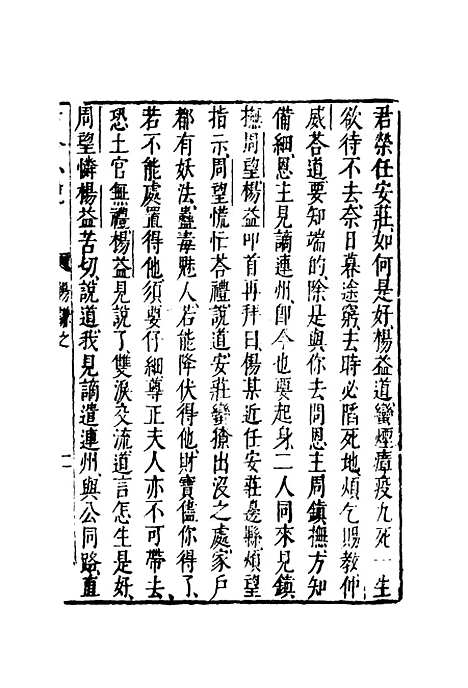 君榮任安莊如何是好楊益道蠻煙瘴疫九死一生
欲待不去奈日暮途窮去時必陷死地煩乞賜教仲
威荅道要知端的除是與你去問恩主周鎮撫方知
備細恩主見謫連州即今也要起身二人同來見鎮
撫周望楊益叩首再拜曰楊某近任安莊邊縣煩望
指示周望慌忙荅禮說道安莊蠻獠出沒之處家戶
都有妖法蠱毒魅人若能降伏得他財寶儘你得了
若不能處置得他須要仔細尊正夫人亦不可帶去
恐土官無禮楊益見說了雙淚交流道言怎生是好
周望憐楊益苦切說道我見謫遣連州與公同路直
楊 之 二